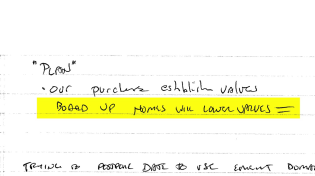 "PLAN"
• our purchase establish values
BOARD UP HOMES WILL LOWER VALUES =
TRYING to POSTPONE DATE to USE EMINENT DOMAI